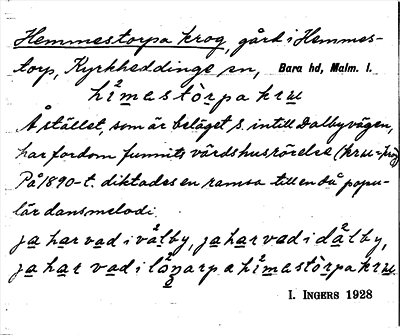 Hemmestorpa krog, gård i Hemmes-
torp, Kyrkheddinge sn, Bara hd, Malm. l.
hímastòrpa kru
Å stället, som är beläget S. intill Dalbyvägen,
har fordom funnits värdshusrörelse (kru = krog)
På 1890-t. diktades en ramsa till en då popu-
lär dansmelodi.
ja har vad i vålby, ja har vad i dålby,
ja har vad i lòngarpa hímastòrpa kru.
I. INGERS 1928